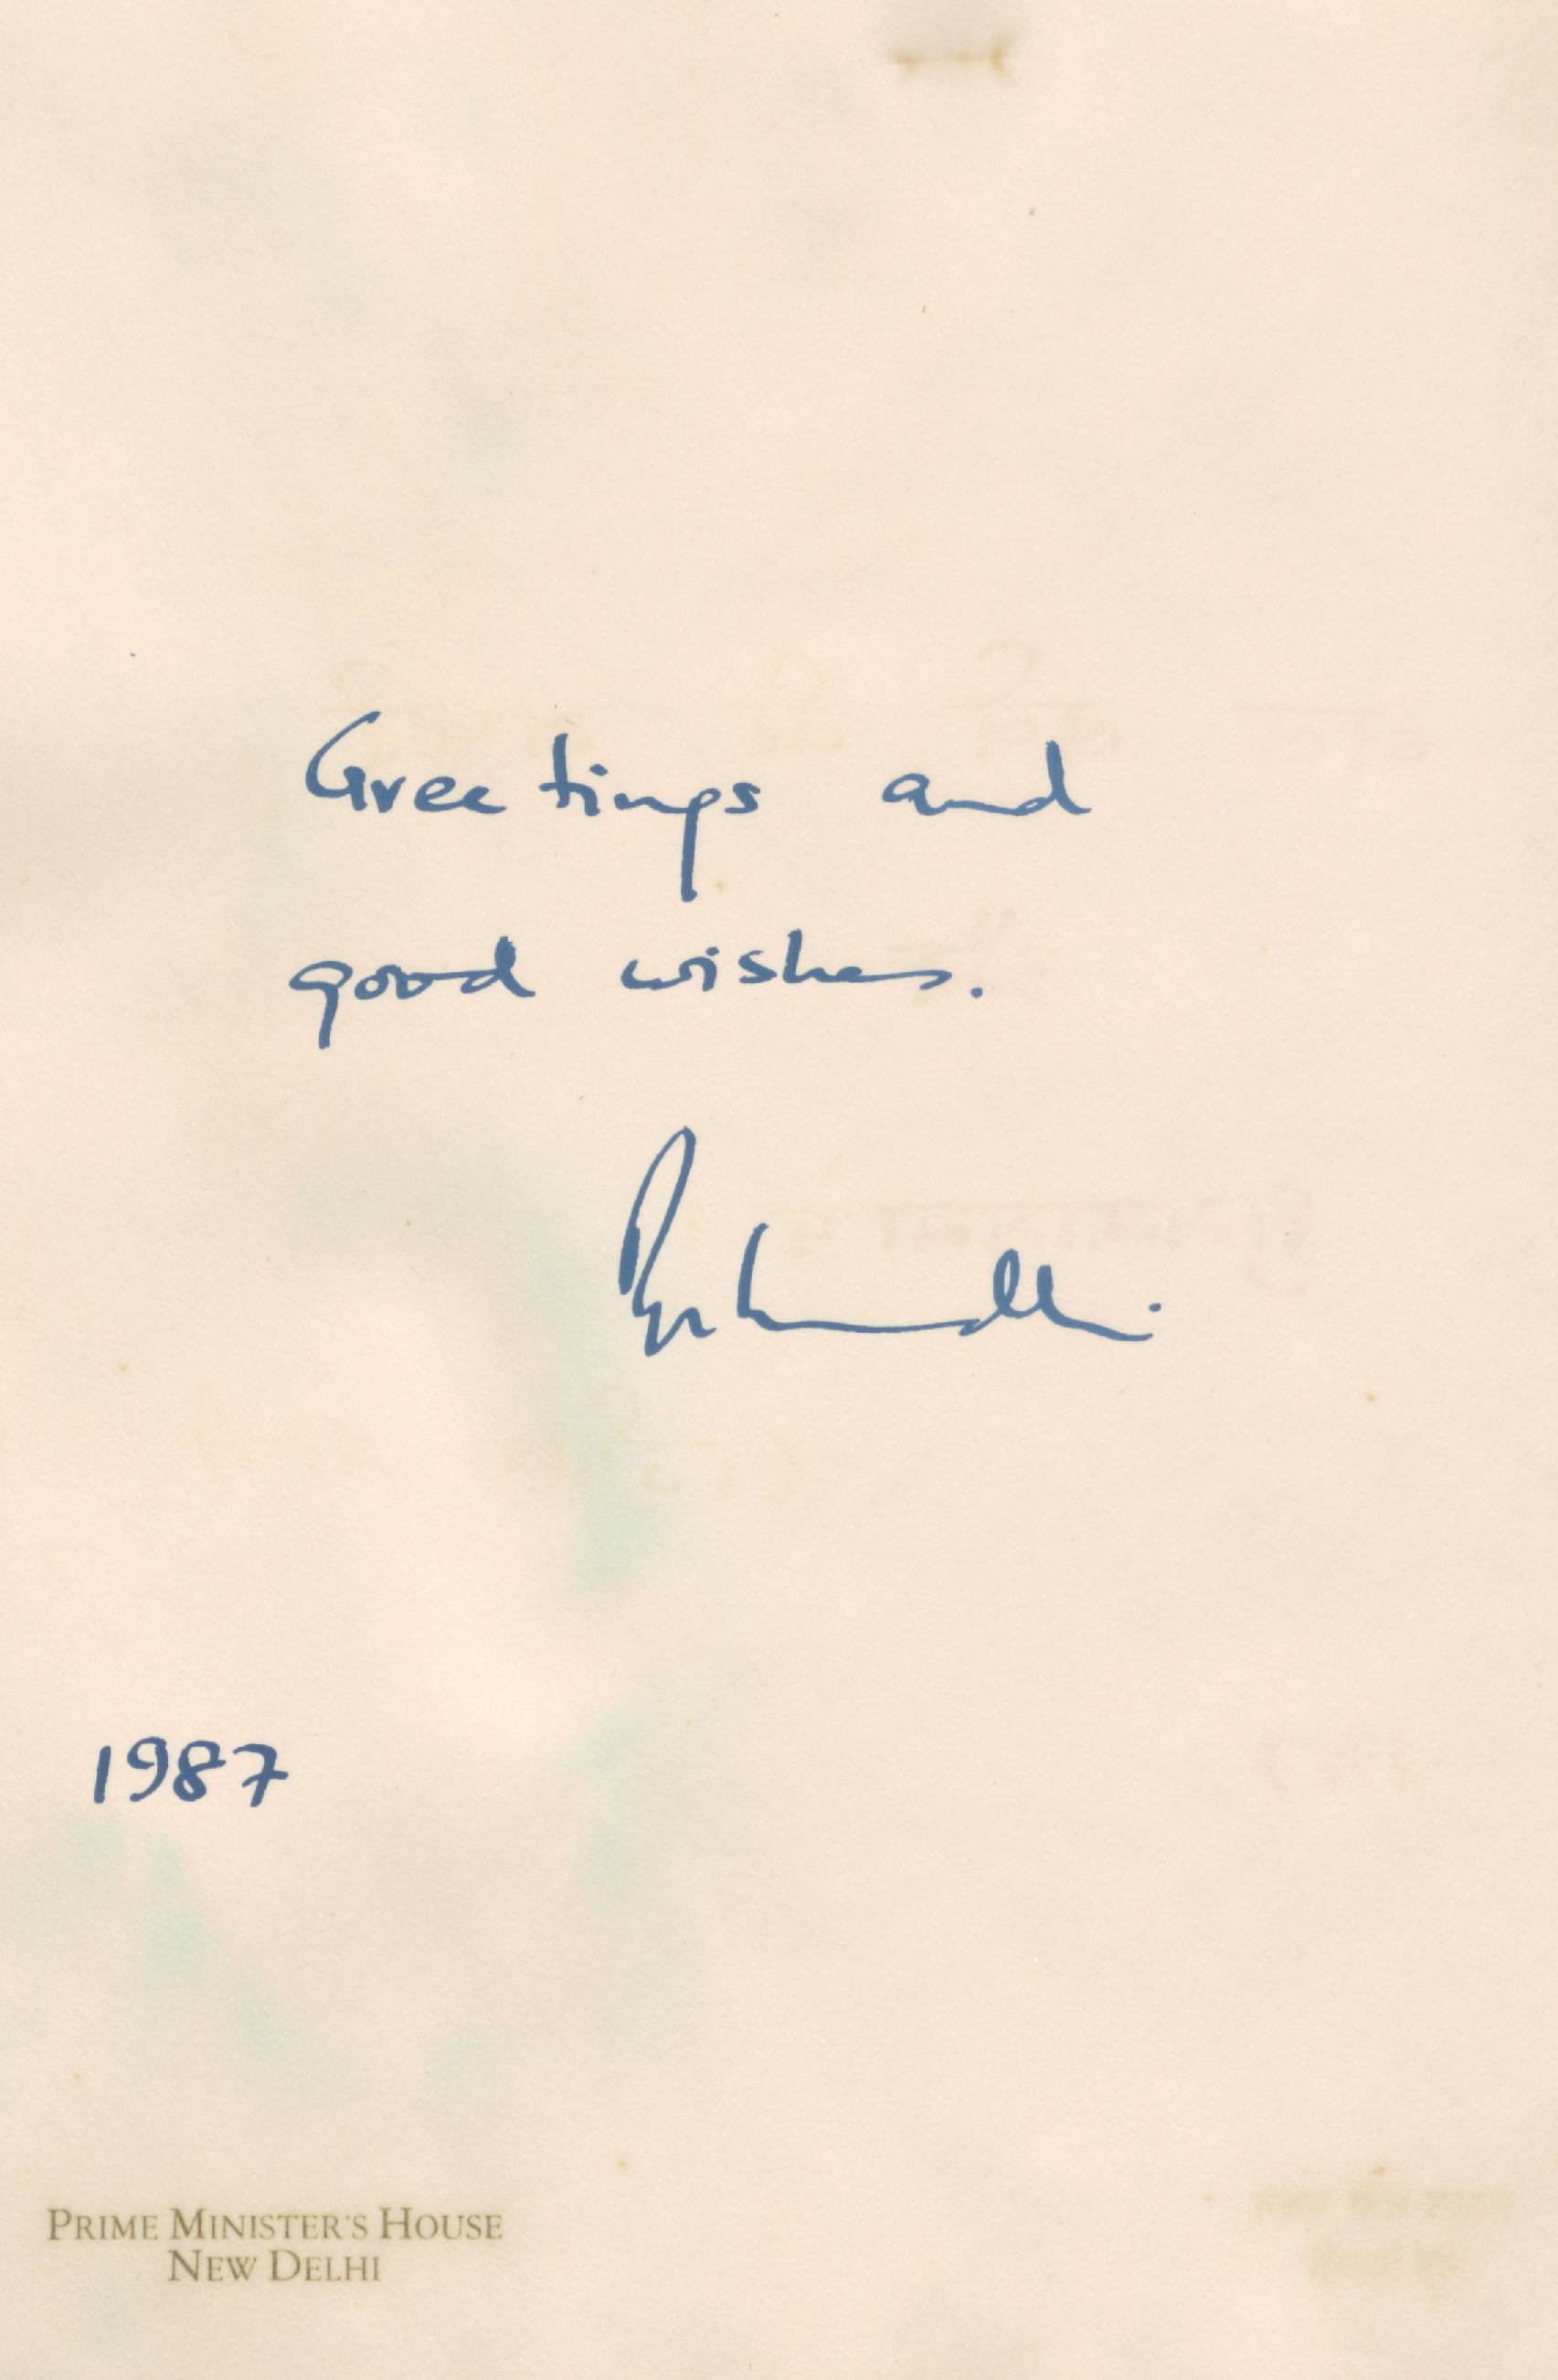 Greetings and
good wishes.
1987
PRIME MINISTER'S HOUSE
NEW DELHI